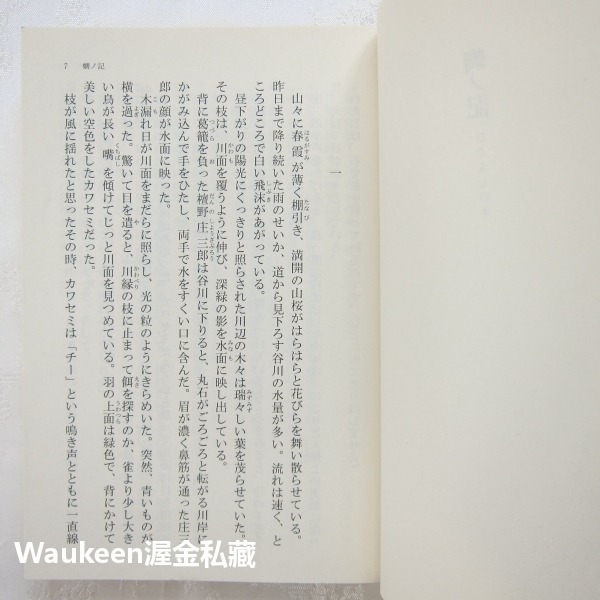 7 蜩ノ記
一
山々に春霞が薄く棚引き、満開の山桜がはらはらと花びらを舞い散らせている。
昨日まで降り続いた雨のせいか、道から見下ろす谷川の水量が多い。流れは速く、と
ころどころで白い飛沫があがっている。
昼下がりの陽光にくっきりと照らされた川辺の木々は瑞々しい葉を茂らせていた。
その枝は、川面を覆うように伸び、深緑の影を水面に映し出している。
背に葛籠を負った檀野庄三郎は谷川に下りると、丸石がごろごろと転がる川岸に
かがみ込んで手をひたし、両手で水をすくい口に含んだ。眉が濃く鼻筋が通った庄三
郎の顔が水面に映った。
木漏れ日が川面をまだらに照らし、光の粒のようにきらめいた。突然、青いものが
横を過った。驚いて目を遣ると、川縁の枝に止まって餌を探すのか、雀より少し大き
い鳥が長い嘴を傾けてじっと川面を見つめている。羽の上面は緑色で、背にかけて
美しい空色をしたカワセミだった。
枝が風に揺れたと思ったその時、カワセミは「チー」という鳴き声とともに一直線
Waukeen渥金私藏